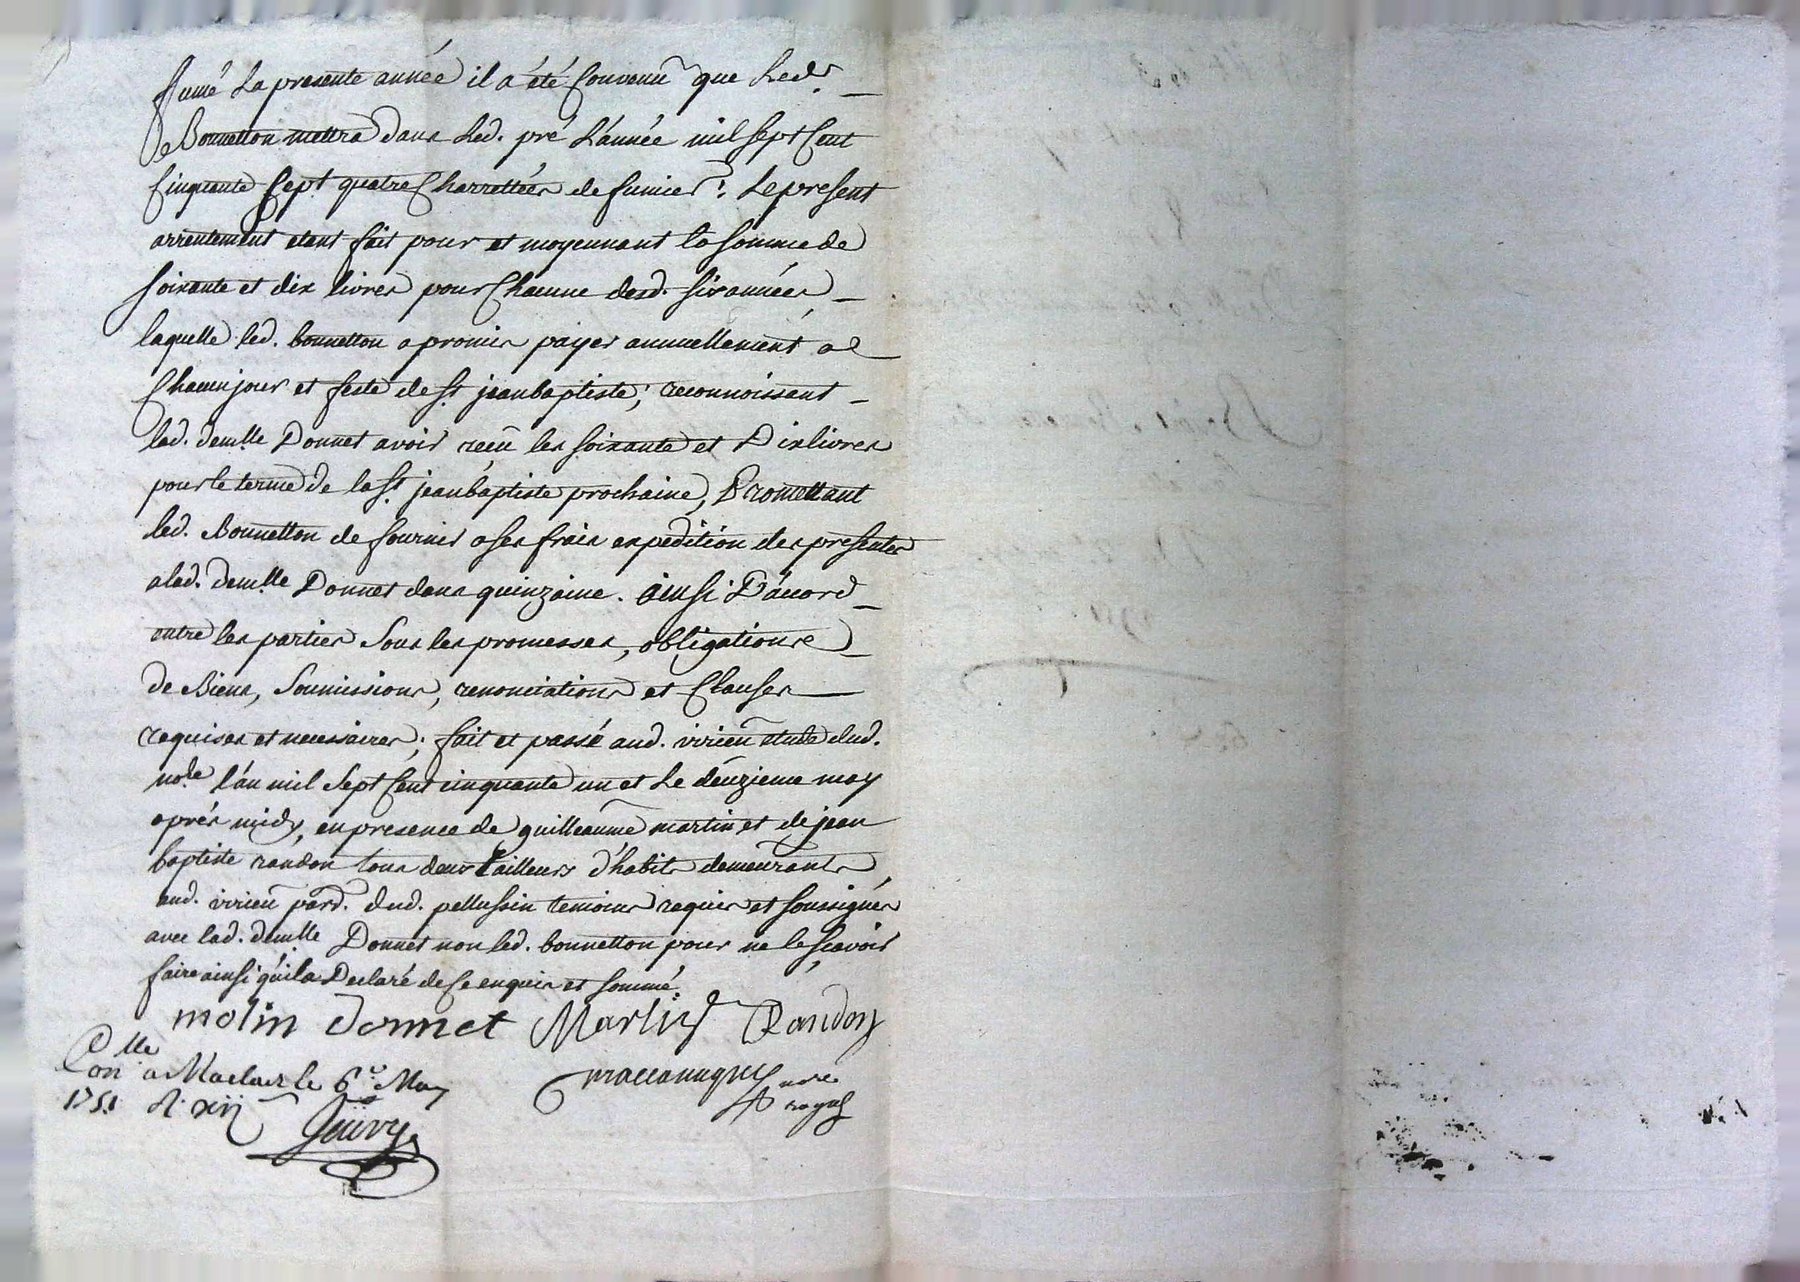 fumé La presente année il a été Convenu que Led.
Bonnetton mettra dans Led. pré L'année mil sept Cent
Cinquante Sept quatre Charrettées de fumier: Le present
arrentement etant fait pour et moyennant la somme de
soixante et dix livres pour Chacune desd. six années
laquelle led. bonnetton a promis payer annuellement a
Chacun jour et feste de St jean baptiste; reconnoissant
lad. demlle Donnet avoir reçu les soixante et Dix livres
pour le terme de la St jean baptiste prochaine, Promettant
led. Bonnetton de fournir a ses frais expedition des presentes
a lad. demlle Donnet dans quinzaine. ainsi D'acord
entre les parties Sous les promesses, obligations
de Biens, Soumissions, renonciations et Clauses
requises et necessaires; fait et passé aud. virieu etude dud.
nore l'an mil Sept Cent cinquante un et Le deuzieme may
aprés midy, en presence de guilleaume martin et de jean
baptiste randon tous deux tailleurs d'habits demeurants
aud. virieu parr. dud. pellussin temoins requis et soussignés
avec lad. demlle Donnet non led. bonnetton pour ne le sçavoir
faire ainsi qu'il a Declaré de Ce enquis et sommé.
molin donnet Martin Randon
Conlle a Maclas le 6e May
1751 R. xiij
nore
royal